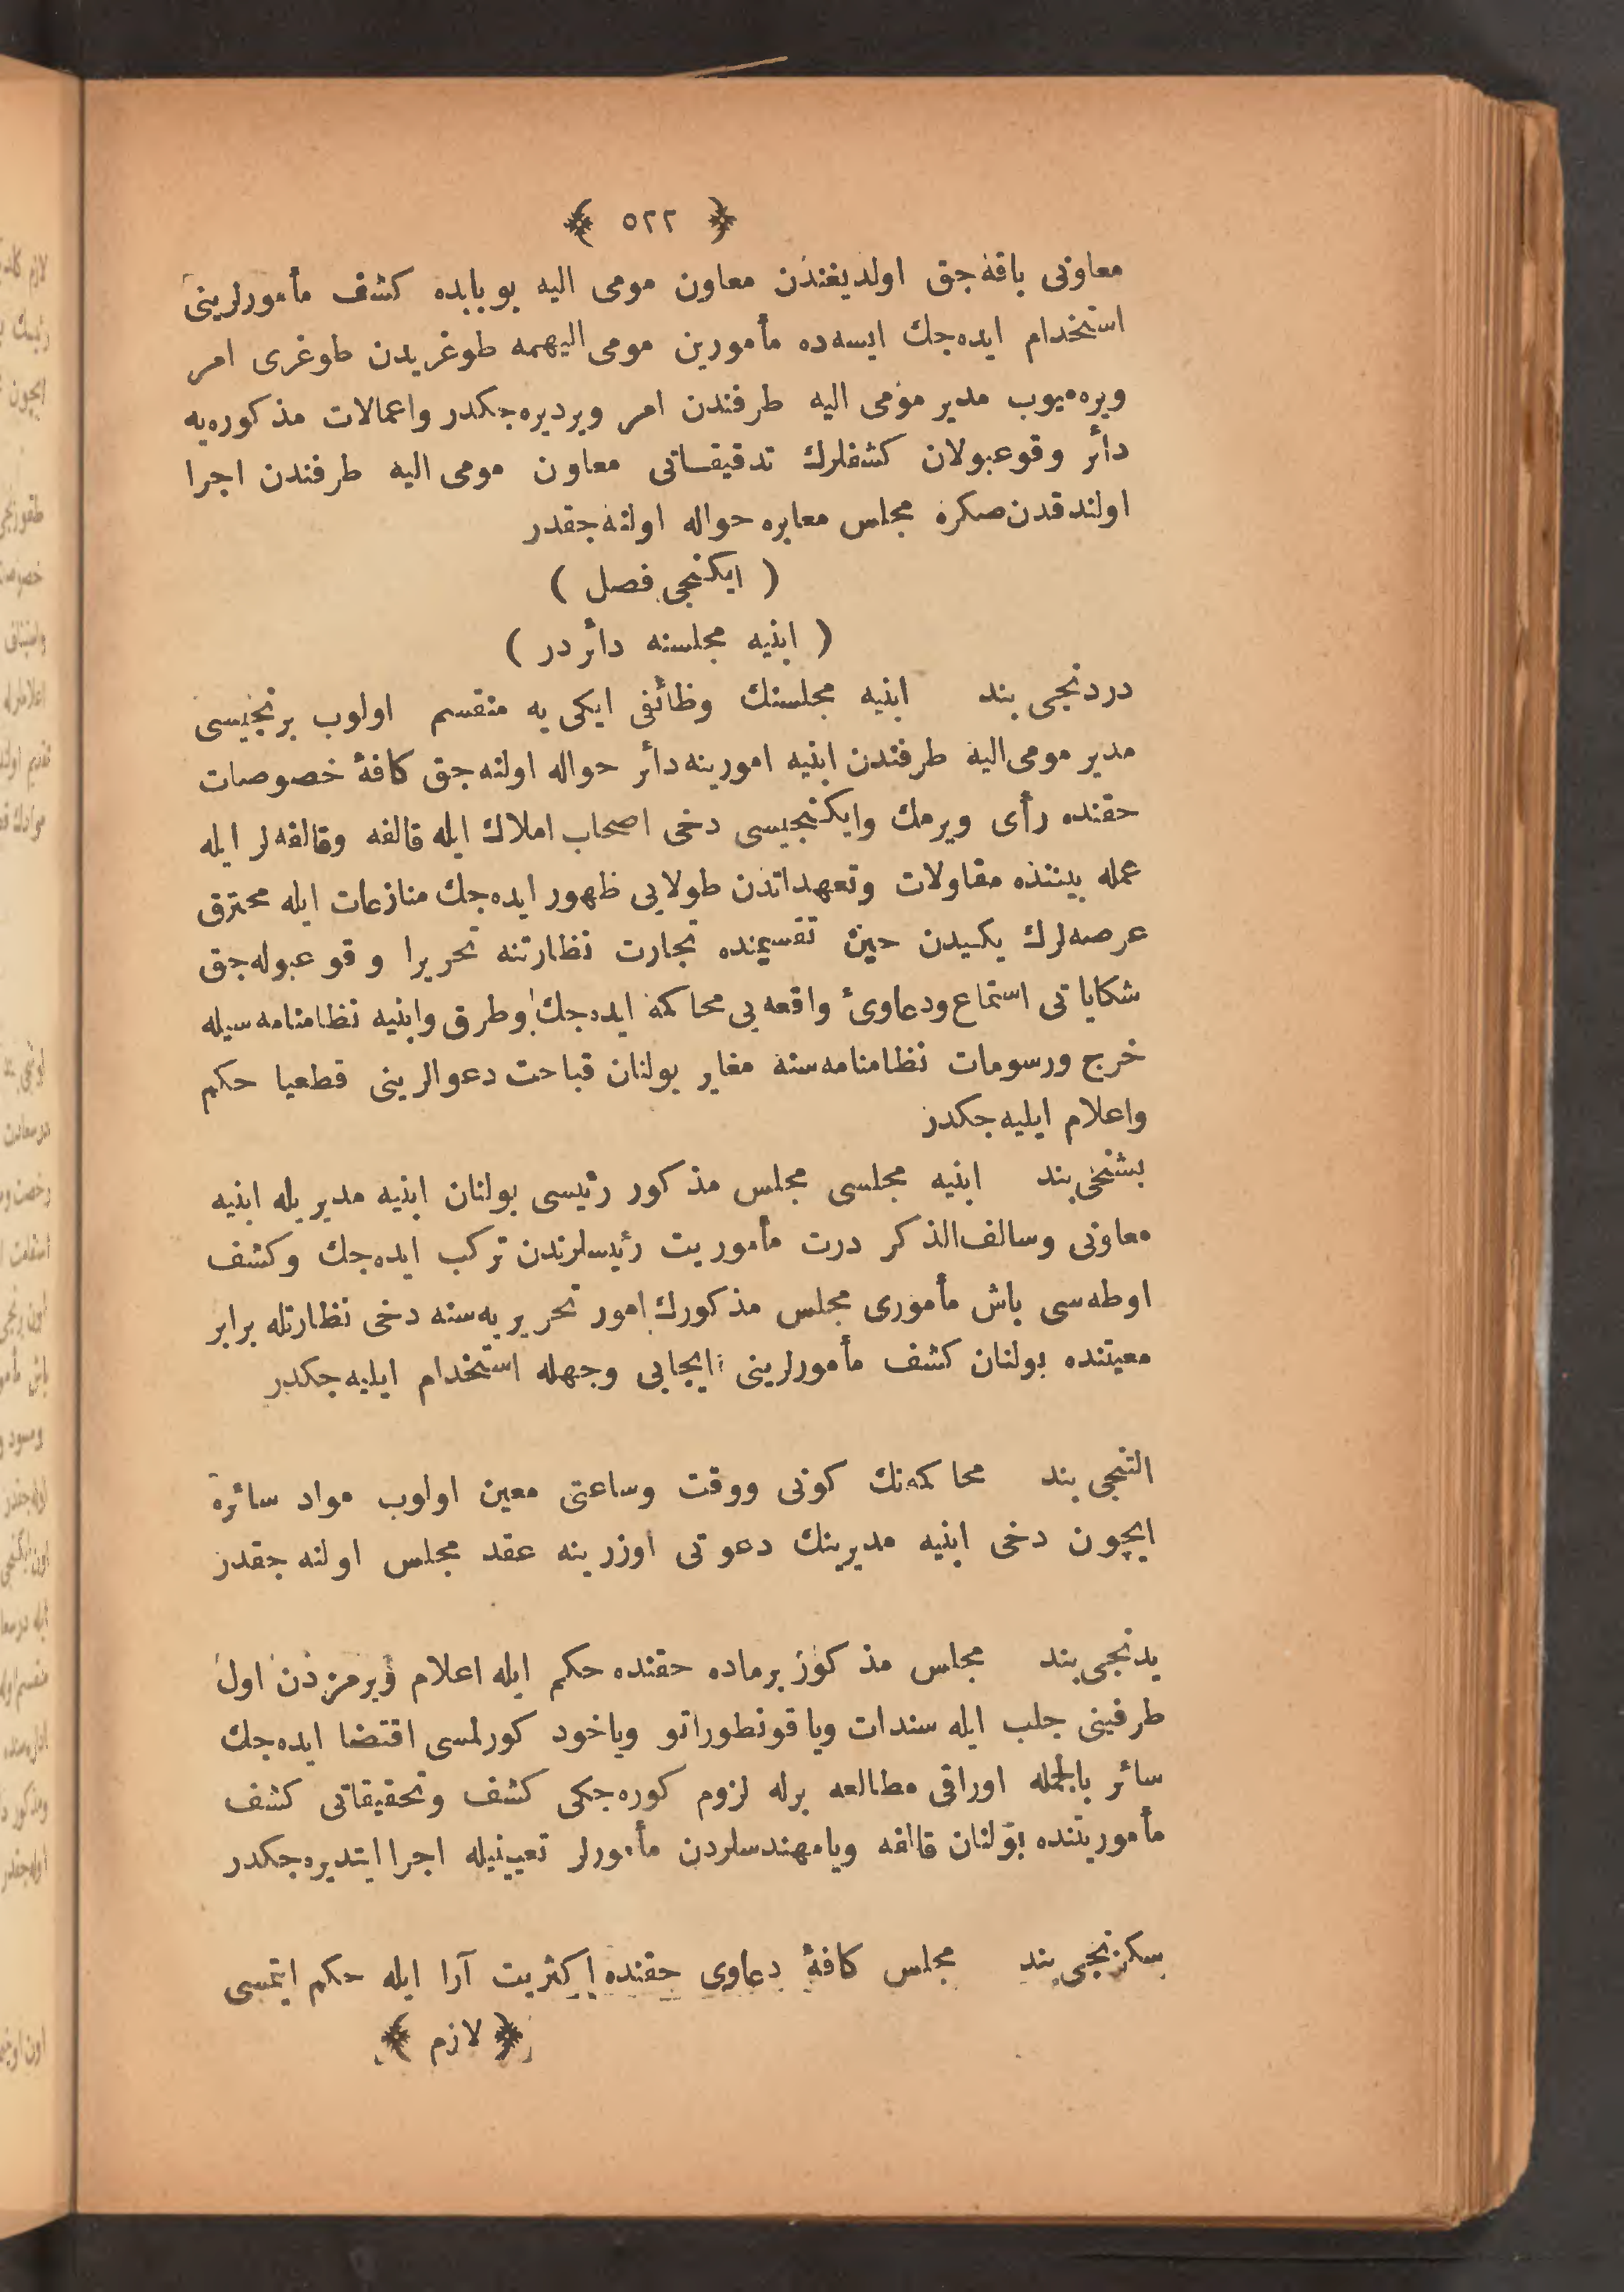 ﴿ ٥٢٢ ﴾
معاونی باقه‌جق اولدیغندن معاون مومی الیه بوبابده كشف مأمورلرینی
استخدام ایده‌جك ایسه‌ده مأمورین مومی‌الیهمه طوغریدن طوغری امر
ویره‌میوب مدیر مومی الیه طرفندن امر ویردیره‌جكدر واعمالات مذكوره‌یه
دأئر وقوعبولان كشفلرك تدقیقاتی معاون مومی الیه طرفندن اجرا
اولندقدن‌صكره مجلس معابره حواله اولنه‌جقدر
( ایكنجی فصل )
( ابنیه مجلسنه دأئر در )
دردنجی بند ابنیه مجلسنك وظائفی ایكی یه منقسم اولوب برنجیسی
مدیر مومی‌الیه طرفندن ابنیه امورینه دأئر حواله اولنه‌جق كافهٔ خصوصات
حقنده رأی ویرمك وایكنجیسی دخی اصحاب املاك ایله قالفه وقالفه‌لر ایله
عمله بیننده مقاولات وتعهداتدن طولایی ظهور ایده‌جك منازعات ایله محترق
عرصه‌لرك یكیدن حین تقسیمنده تجارت نظارتنه تحریرا وقوعبوله‌جق
شكایاتی استماع ودعاوئ واقعه‌یی محاكمه ایده‌جك وطرق وابنیه نظامنامه‌سیله
خرج ورسومات نظامنامه‌سنه مغایر بولنان قباحت دعوالرینی قطعیا حكم
واعلام ایلیه‌جكدر
بشنجی بند ابنیه مجلسی مجلس مذكور رئیسی بولنان ابنیه مدیریله ابنیه
معاونی وسالف‌الذكر درت مأموریت رئیسلرندن تركب ایده‌جك وكشف
اوطه‌سی باش مأموری مجلس مذكورك امور تحریریه‌سنه دخی نظارتله برابر
معیتنده بولنان كشف مأمورلرینی ایجابی وجهله استخدام ایلیه‌جكدر
التنجی بند محاكمه‌نك كونی ووقت وساعتی معین اولوب مواد سائره
ایچون دخی ابنیه مدیرینك دعوتی اوزرینه عقد مجلس اولنه جقدر
یدنجی بند مجلس مذكور برماده حقنده حكم ایله اعلام ویرمزدن اول
طرفینی جلب ایله سندات ویا قونطوراتو ویاخود كورلمسی اقتضا ایده‌جك
سائر بالجمله اوراقی مطالعه برله لزوم كوره‌جكی كشف وتحقیقاتی كشف
مأموریتنده بولنان قالفه ویامهندسلردن مأمورلر تعیینیله اجرا ایتدیره‌جكدر
سكزنجی بند مجلس كافهٔ دعاوی حقنده اكثریت آرا ایله حكم ایتمسی
﴿ لازم ﴾